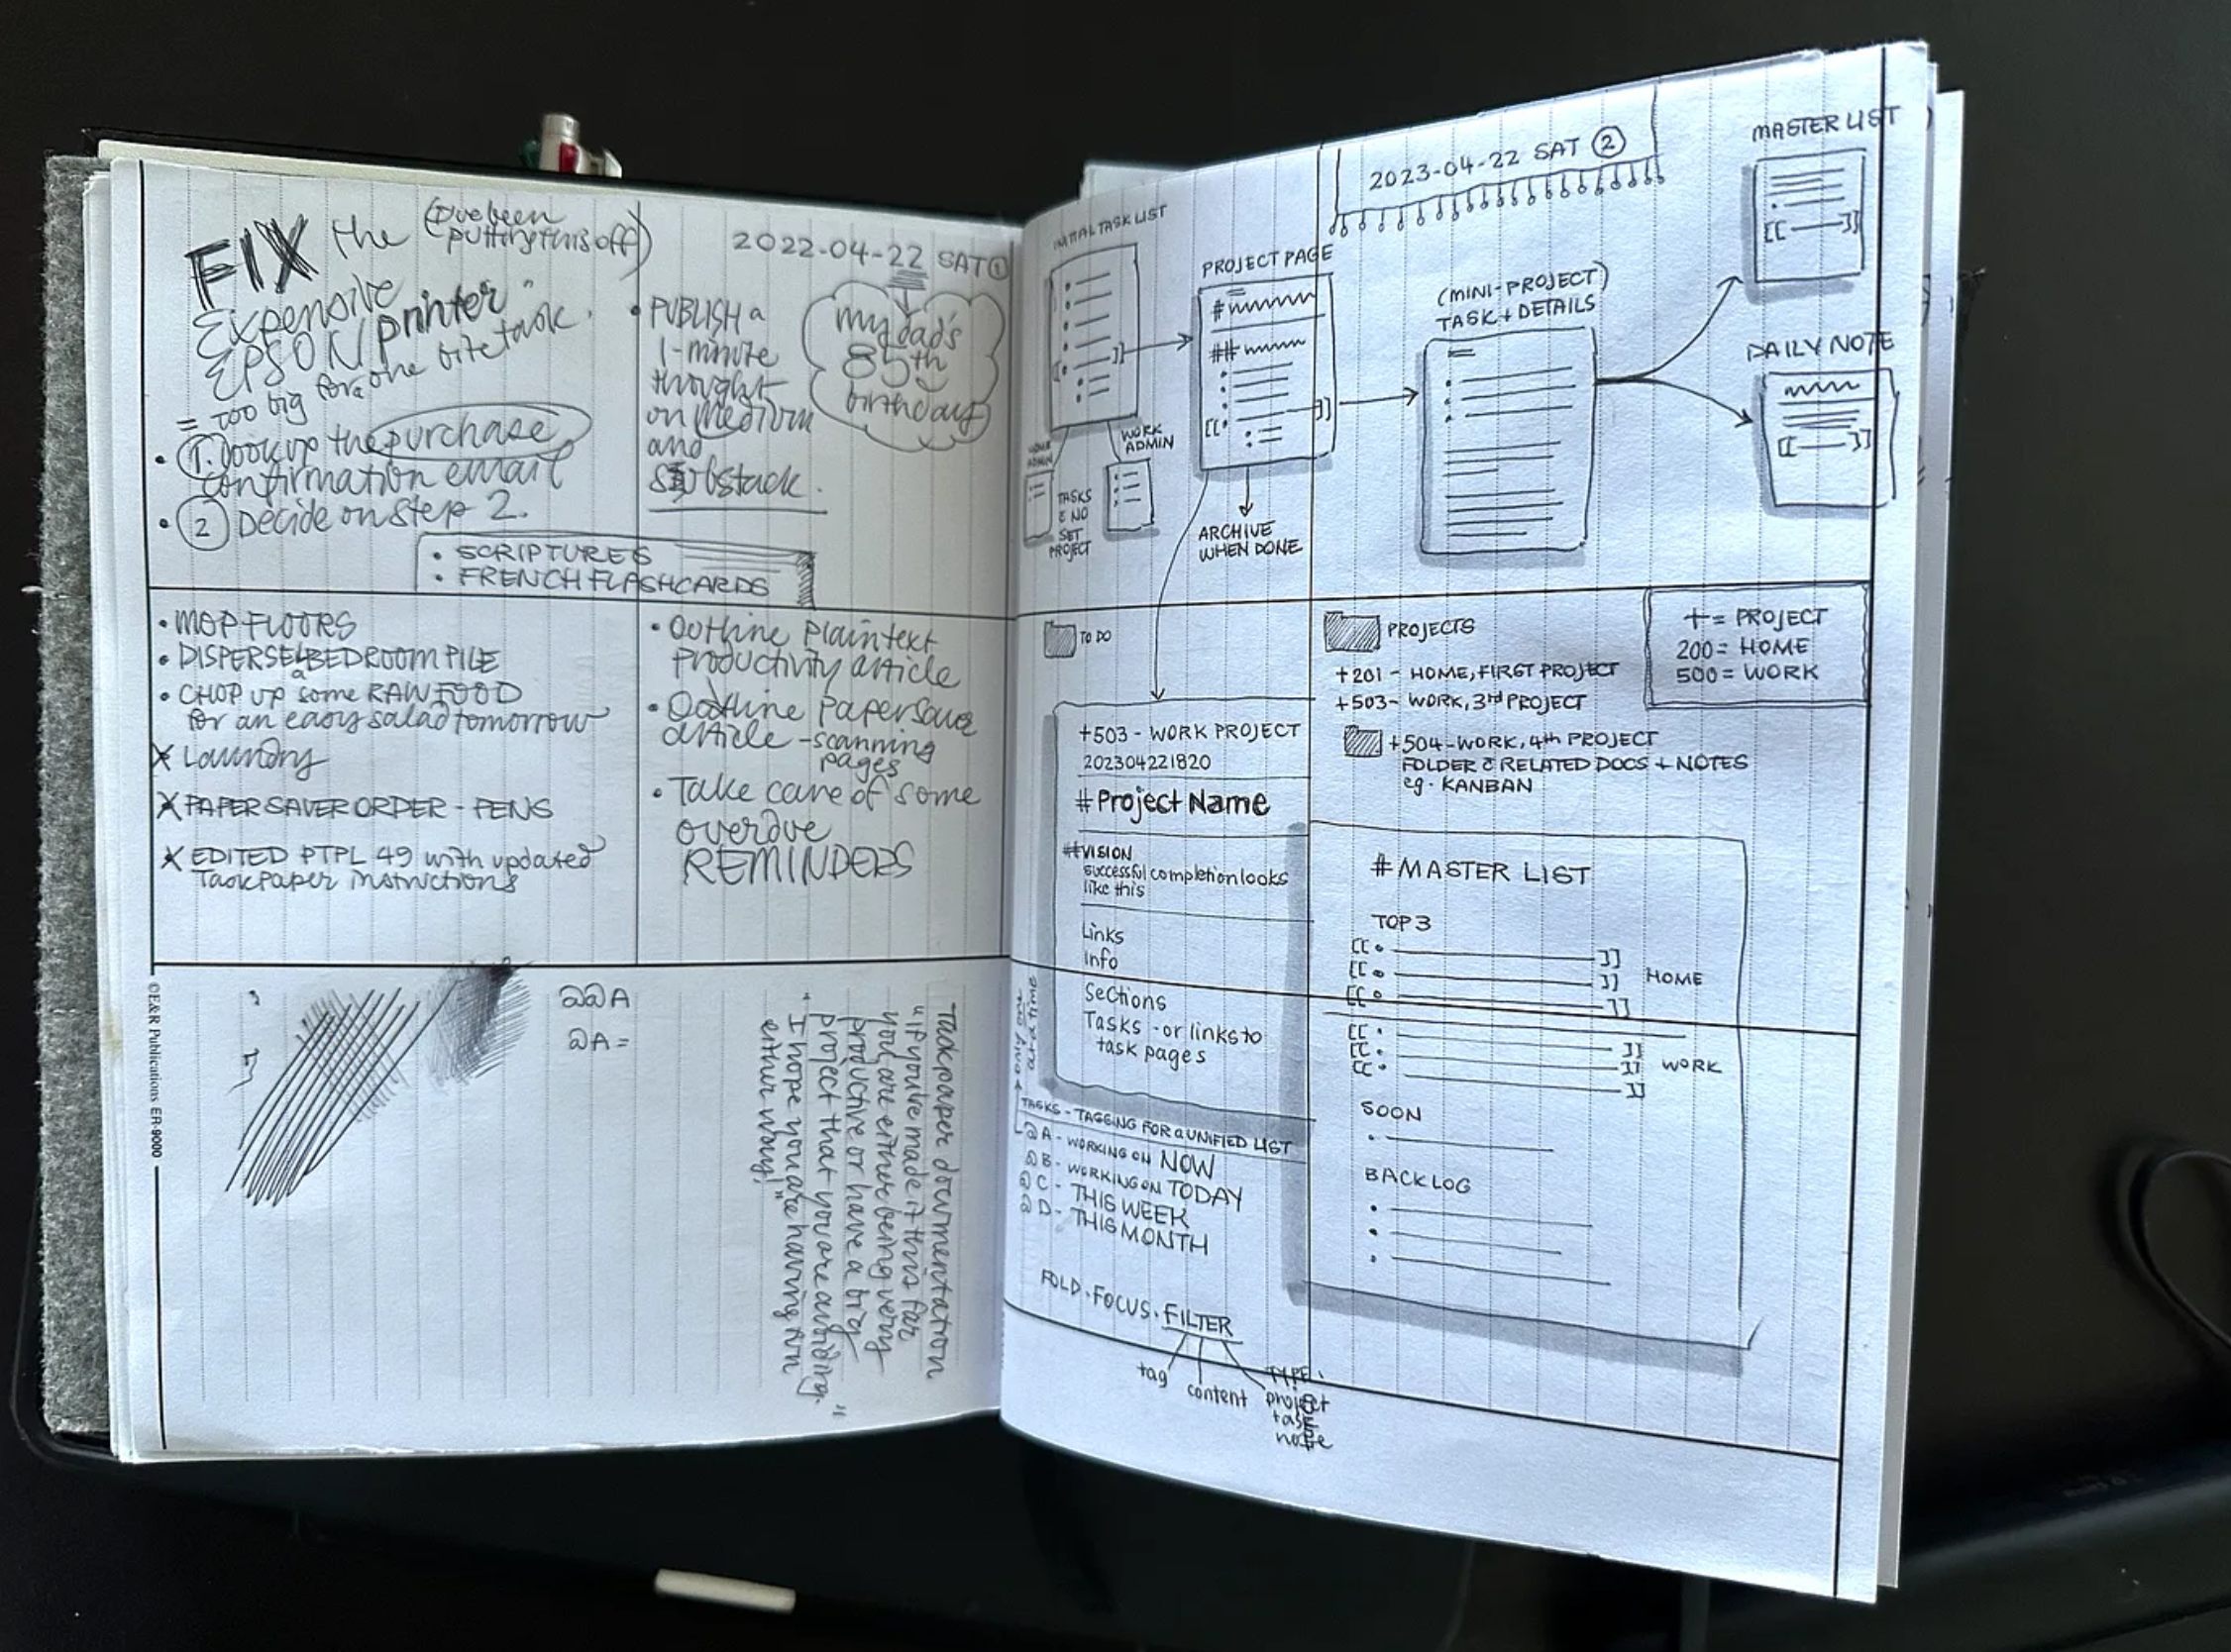 FIX the (I've been
putting this off)
Expensive
EPSON printer
= too big for one bite task.
• 1. Look up the purchase
confirmation email
• 2 Decide on step 2.
2022-04-22 SAT 1
my dad's
85th
birthday
• PUBLISH a
1-minute
thought
on medium
and
Substack.
• SCRIPTURES
• FRENCH FLASHCARDS
• MOP FLOORS
• DISPERSE BEDROOM PILE
• CHOP up some RAW FOOD
for an easy salad tomorrow
X Laundry
X PAPER SAVER ORDER - PENS
X EDITED PTPL 49 with updated
Taskpaper instructions
• Outline plaintext
productivity article
• Outline papersaver
article - scanning
pages
• Take care of some
overdue
REMINDERS
@@A
@A =
Taskpaper documentation
"If you've made it this far
you are either being very
productive or have a big
project that you are avoiding.
I hope you are having fun
either way!"
©E&R Publications ER-9000
2023-04-22 SAT 2
INITIAL TASK LIST
PROJECT PAGE
#
##
[[
]]
(MINI-PROJECT)
TASK + DETAILS
MASTER LIST
[[ ]]
DAILY NOTE
[[ ]]
ADMIN
WORK
ADMIN
TASKS
C NO
SET
PROJECT
ARCHIVE
WHEN DONE
TO DO
+503 - WORK PROJECT
202304221820
# Project Name
## VISION
successful completion looks
like this
Links
Info
Sections
Tasks - or links to
task pages
PROJECTS
+201 - HOME, FIRST PROJECT
+503 - WORK, 3rd PROJECT
+504 - WORK, 4th PROJECT
FOLDER C RELATED DOCS + NOTES
eg. KANBAN
+ = PROJECT
200 = HOME
500 = WORK
# MASTER LIST
TOP 3
[[ • ]]
[[ • ]] HOME
[[ • ]]
[[ • ]]
[[ • ]] WORK
[[ • ]]
SOON
•
BACKLOG
•
•
•
ONLY ONE
AT A TIME
TASKS - TAGGING FOR a UNIFIED LIST
@A - WORKING ON NOW
@B - WORKING ON TODAY
@C - THIS WEEK
@D - THIS MONTH
FOLD • FOCUS • FILTER
tag
content
TYPE:
project
task
note